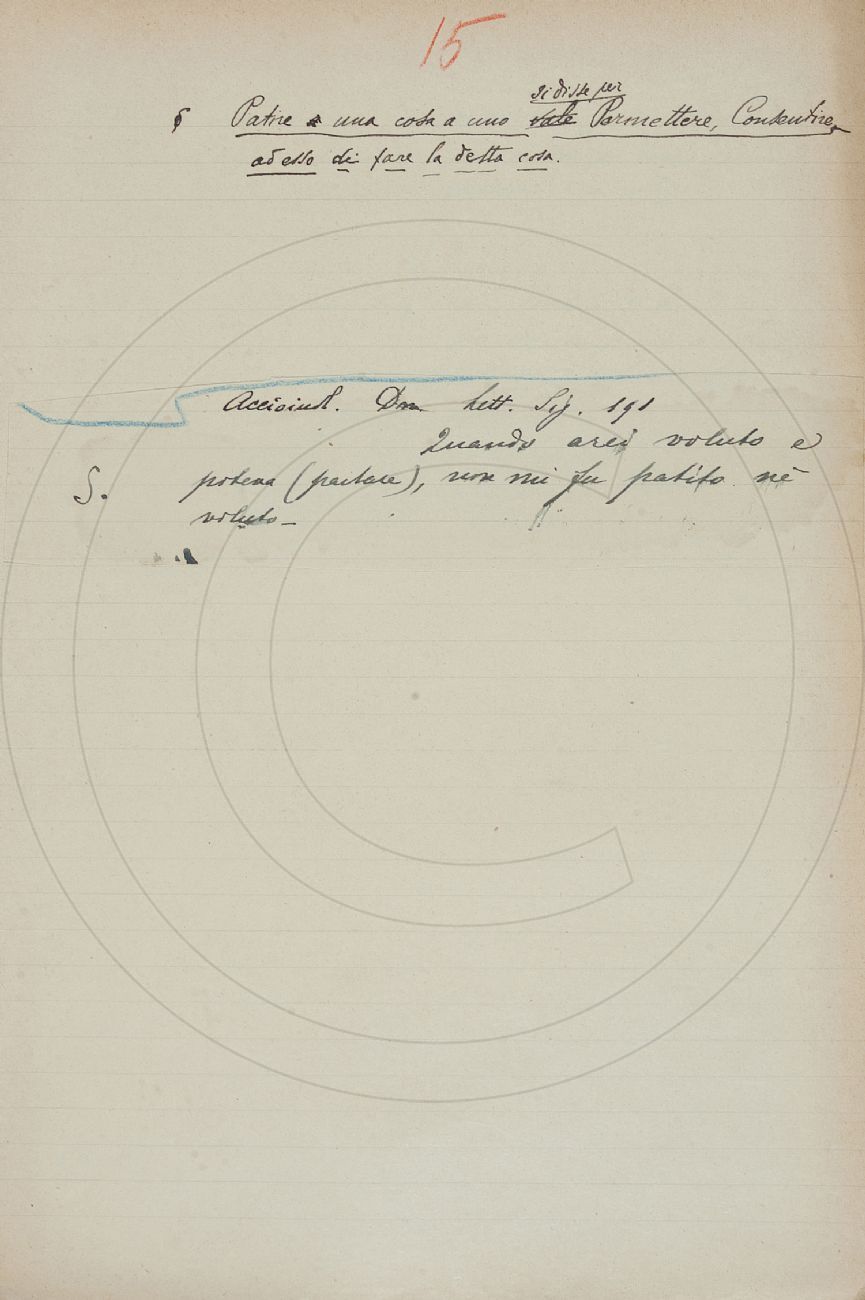 15
si disse per
§ Patire a una cosa a uno vale Permettere, Consentire,
ad esso di fare la detta cosa.
Acciaiuol. Don. Lett. Sig. 191
Quando arei voluto e
S. poteva (parlare), non mi fu patito nè
voluto –